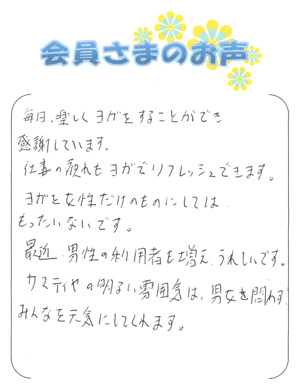 会員さまのお声
毎日、楽しくヨガをすることができ
感謝しています。
仕事の疲れもヨガでリフレッシュできます。
ヨガを女性だけのものにしては
もったいないです。
最近、男性の利用者も増え、うれしいです。
カマティヤの明るい雰囲気は、男女を問わず、
みんなを元気にしてくれます。